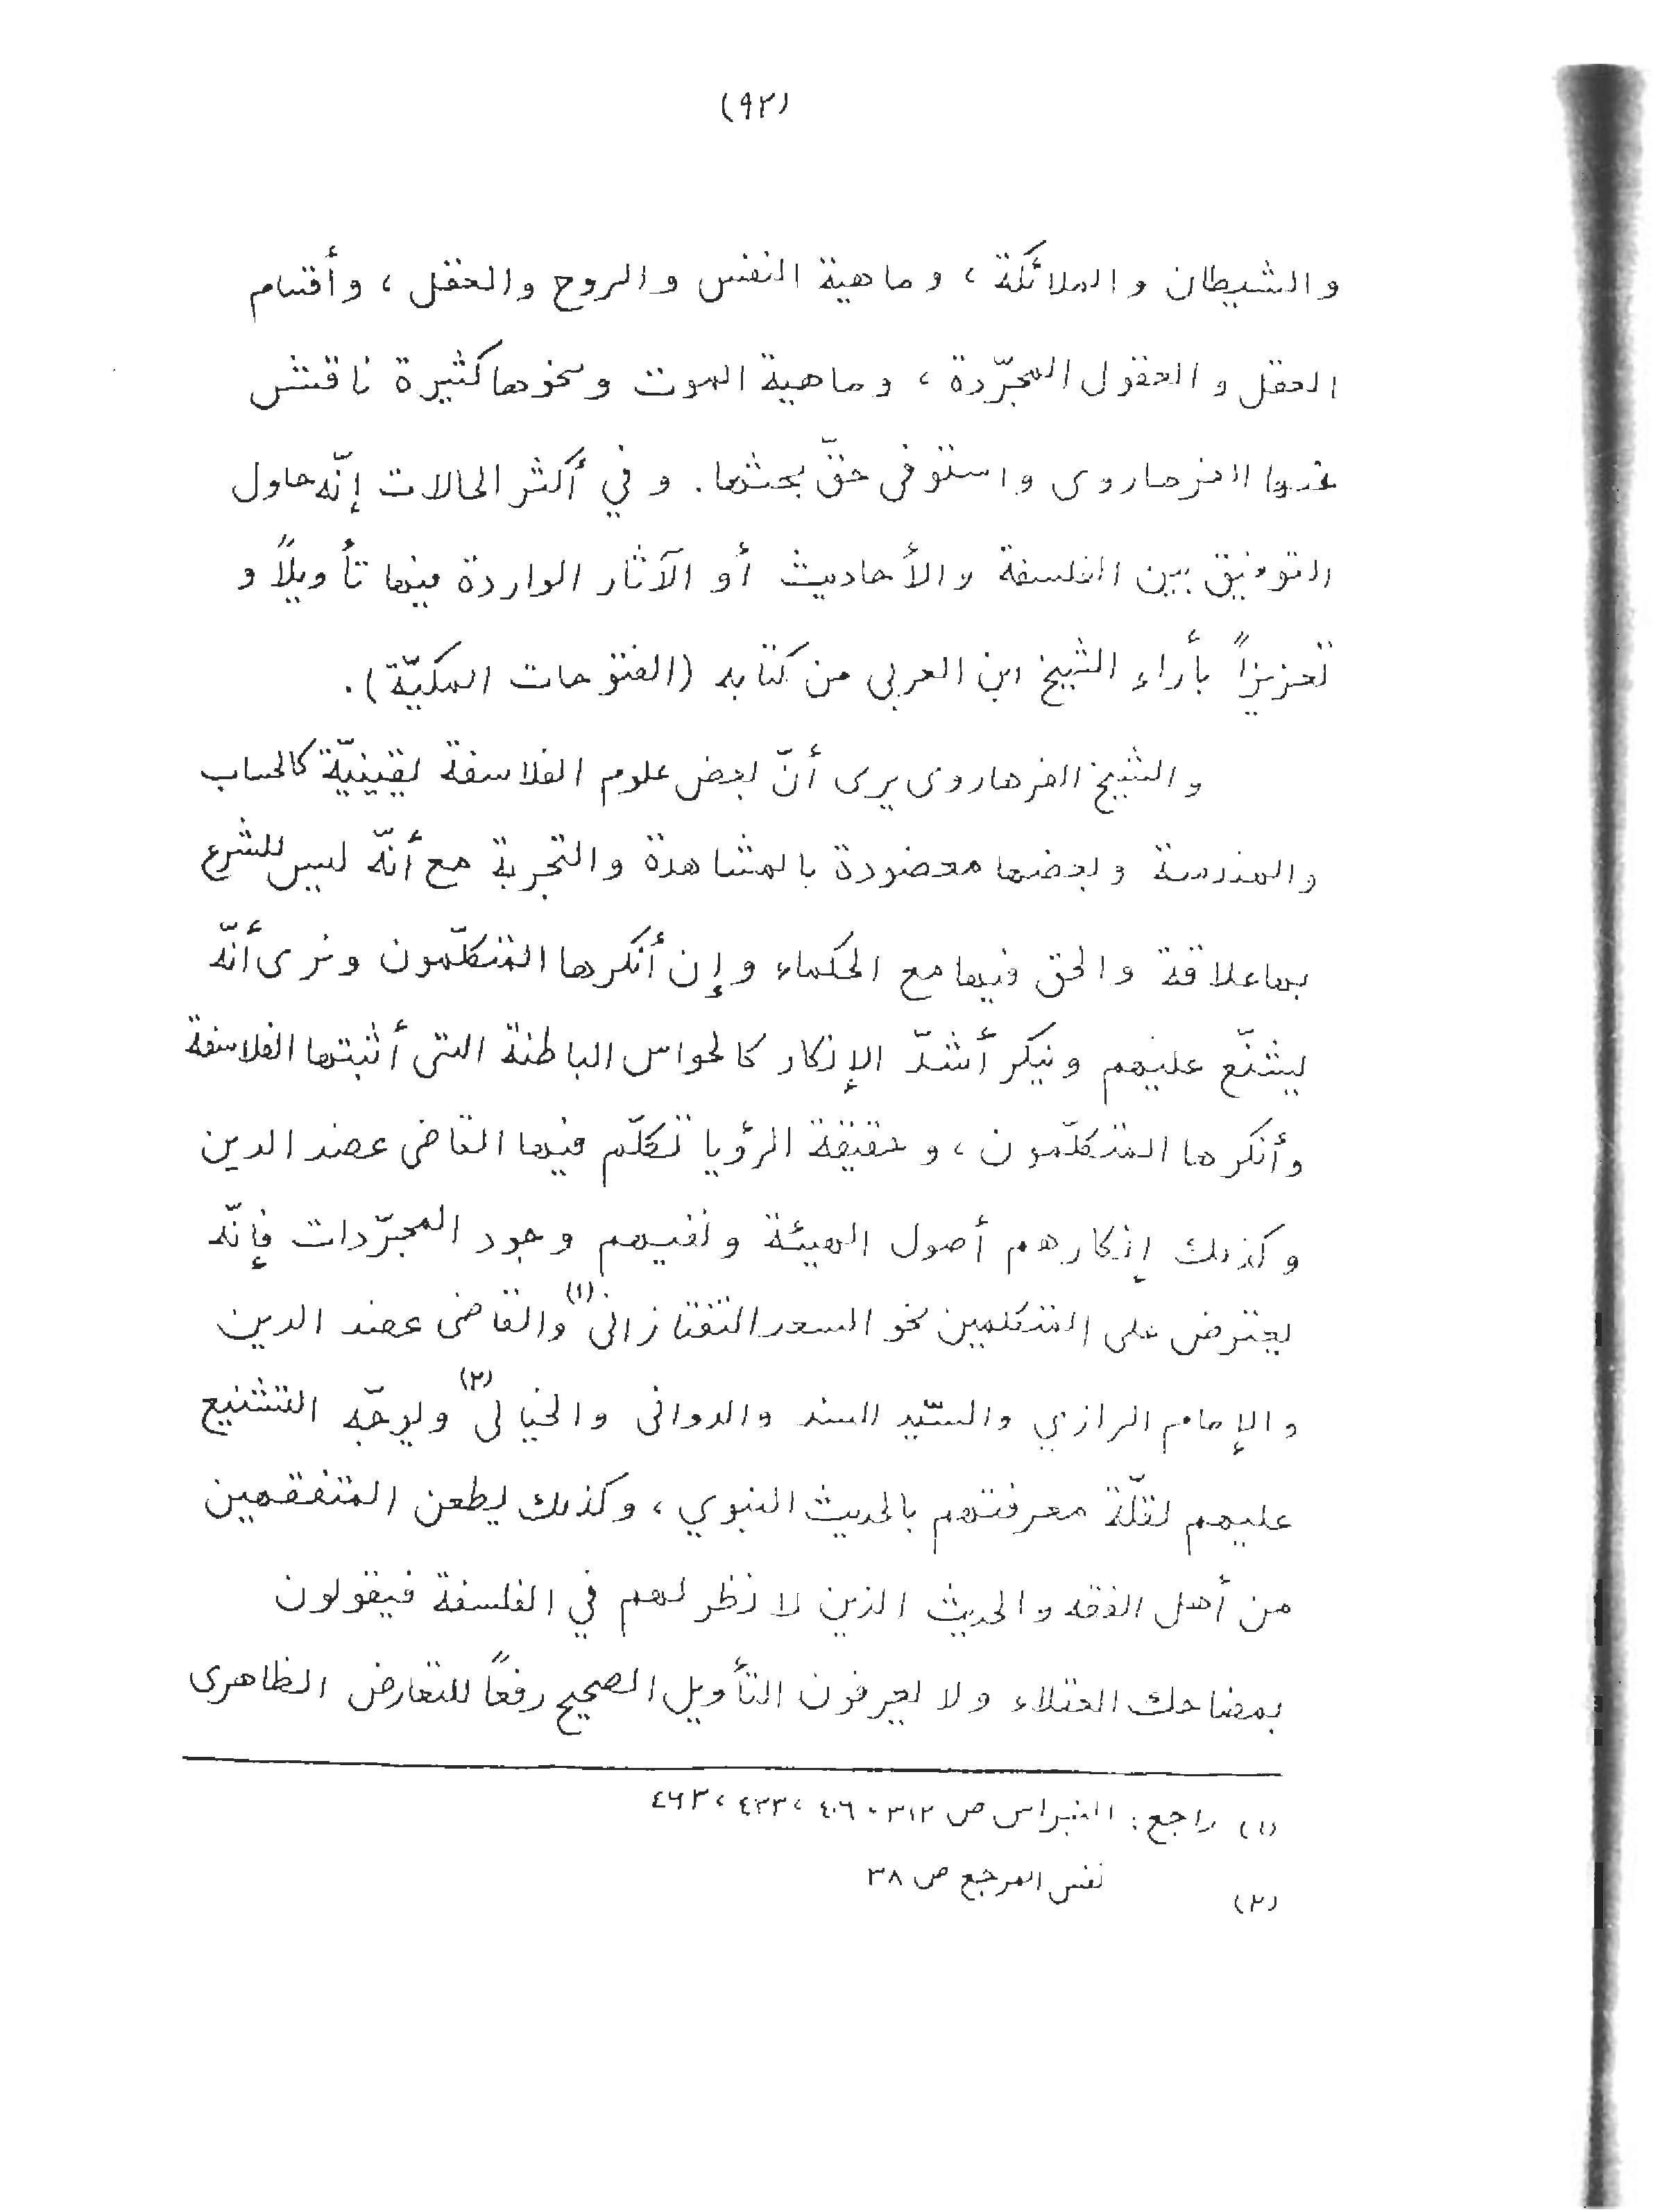 (٩٢)
والشيطان والملائكة ، وماهية النفس والروح والعقل ، وأقسام
العقل والعقول المجرّدة ، وماهية الموت ونحوها كثيرة ناقش
عنها الفرهاروى واستوفى حقّ بحثها. وفي أكثر الحالات إنّه حاول
التوفيق بين الفلسفة والأحاديث أو الآثار الواردة فيها تأويلاً و
تعزيزاً بأراء الشيخ ابن العربى من كتابه (الفتوحات المكيّة).
والشيخ الفرهاروى يرى أنّ بعض علوم الفلاسفة يقينيّة كالحساب
والهندسة وبعضها معضودة بالمشاهدة والتجربة مع أنّه ليس للشرع
بها علاقة والحق فيها مع الحكماء وإن أنكرها المتكلّمون ونرى أنّه
يشنّع عليهم وينكر أشدّ الإنكار كالحواس الباطنة التى أثبتها الفلاسفة
وأنكرها المتكلّمون ، وحقيقة الرؤيا تكلّم فيها القاضى عضد الدين
وكذلك إنكارهم أصول الهيئة ونفيهم وجود المجرّدات فإنّه
يعترض على المتكلمين نحو السعد التفتازانى (١) والقاضى عضد الدين
والإمام الرازي والسيّد السند والدوانى والخيالى (٢) ويوجّه التشنيع
عليهم لقلّة معرفتهم بالحديث النبوي ، وكذلك يطعن المتفقهين
من أهل الفقه والحديث الذين لا نظر لهم في الفلسفة فيقولون
بمضاحك العقلاء ولا يعرفون التأويل الصحيح رفعاً للتعارض الظاهرى
(١) راجع : النبراس ص ٣١٢، ٤٠٦ ، ٤٣٣ ، ٤٦٣
(٢) نفس المرجع ص ٣٨